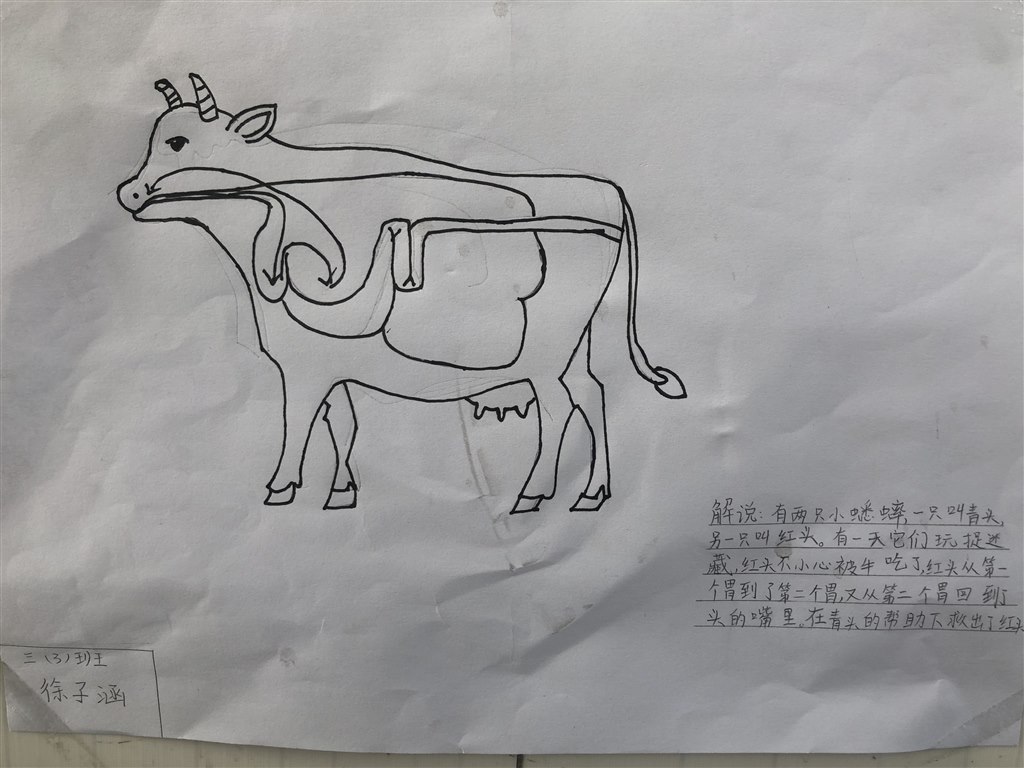 解说：有两只小蟋蟀,一只叫青头,
另一只叫红头。有一天它们玩捉迷
藏,红头不小心被牛吃了,红头从第一
个胃到了第二个胃,又从第二个胃回到了
头的嘴里。在青头的帮助下救出了红头
三(3)班
徐子涵